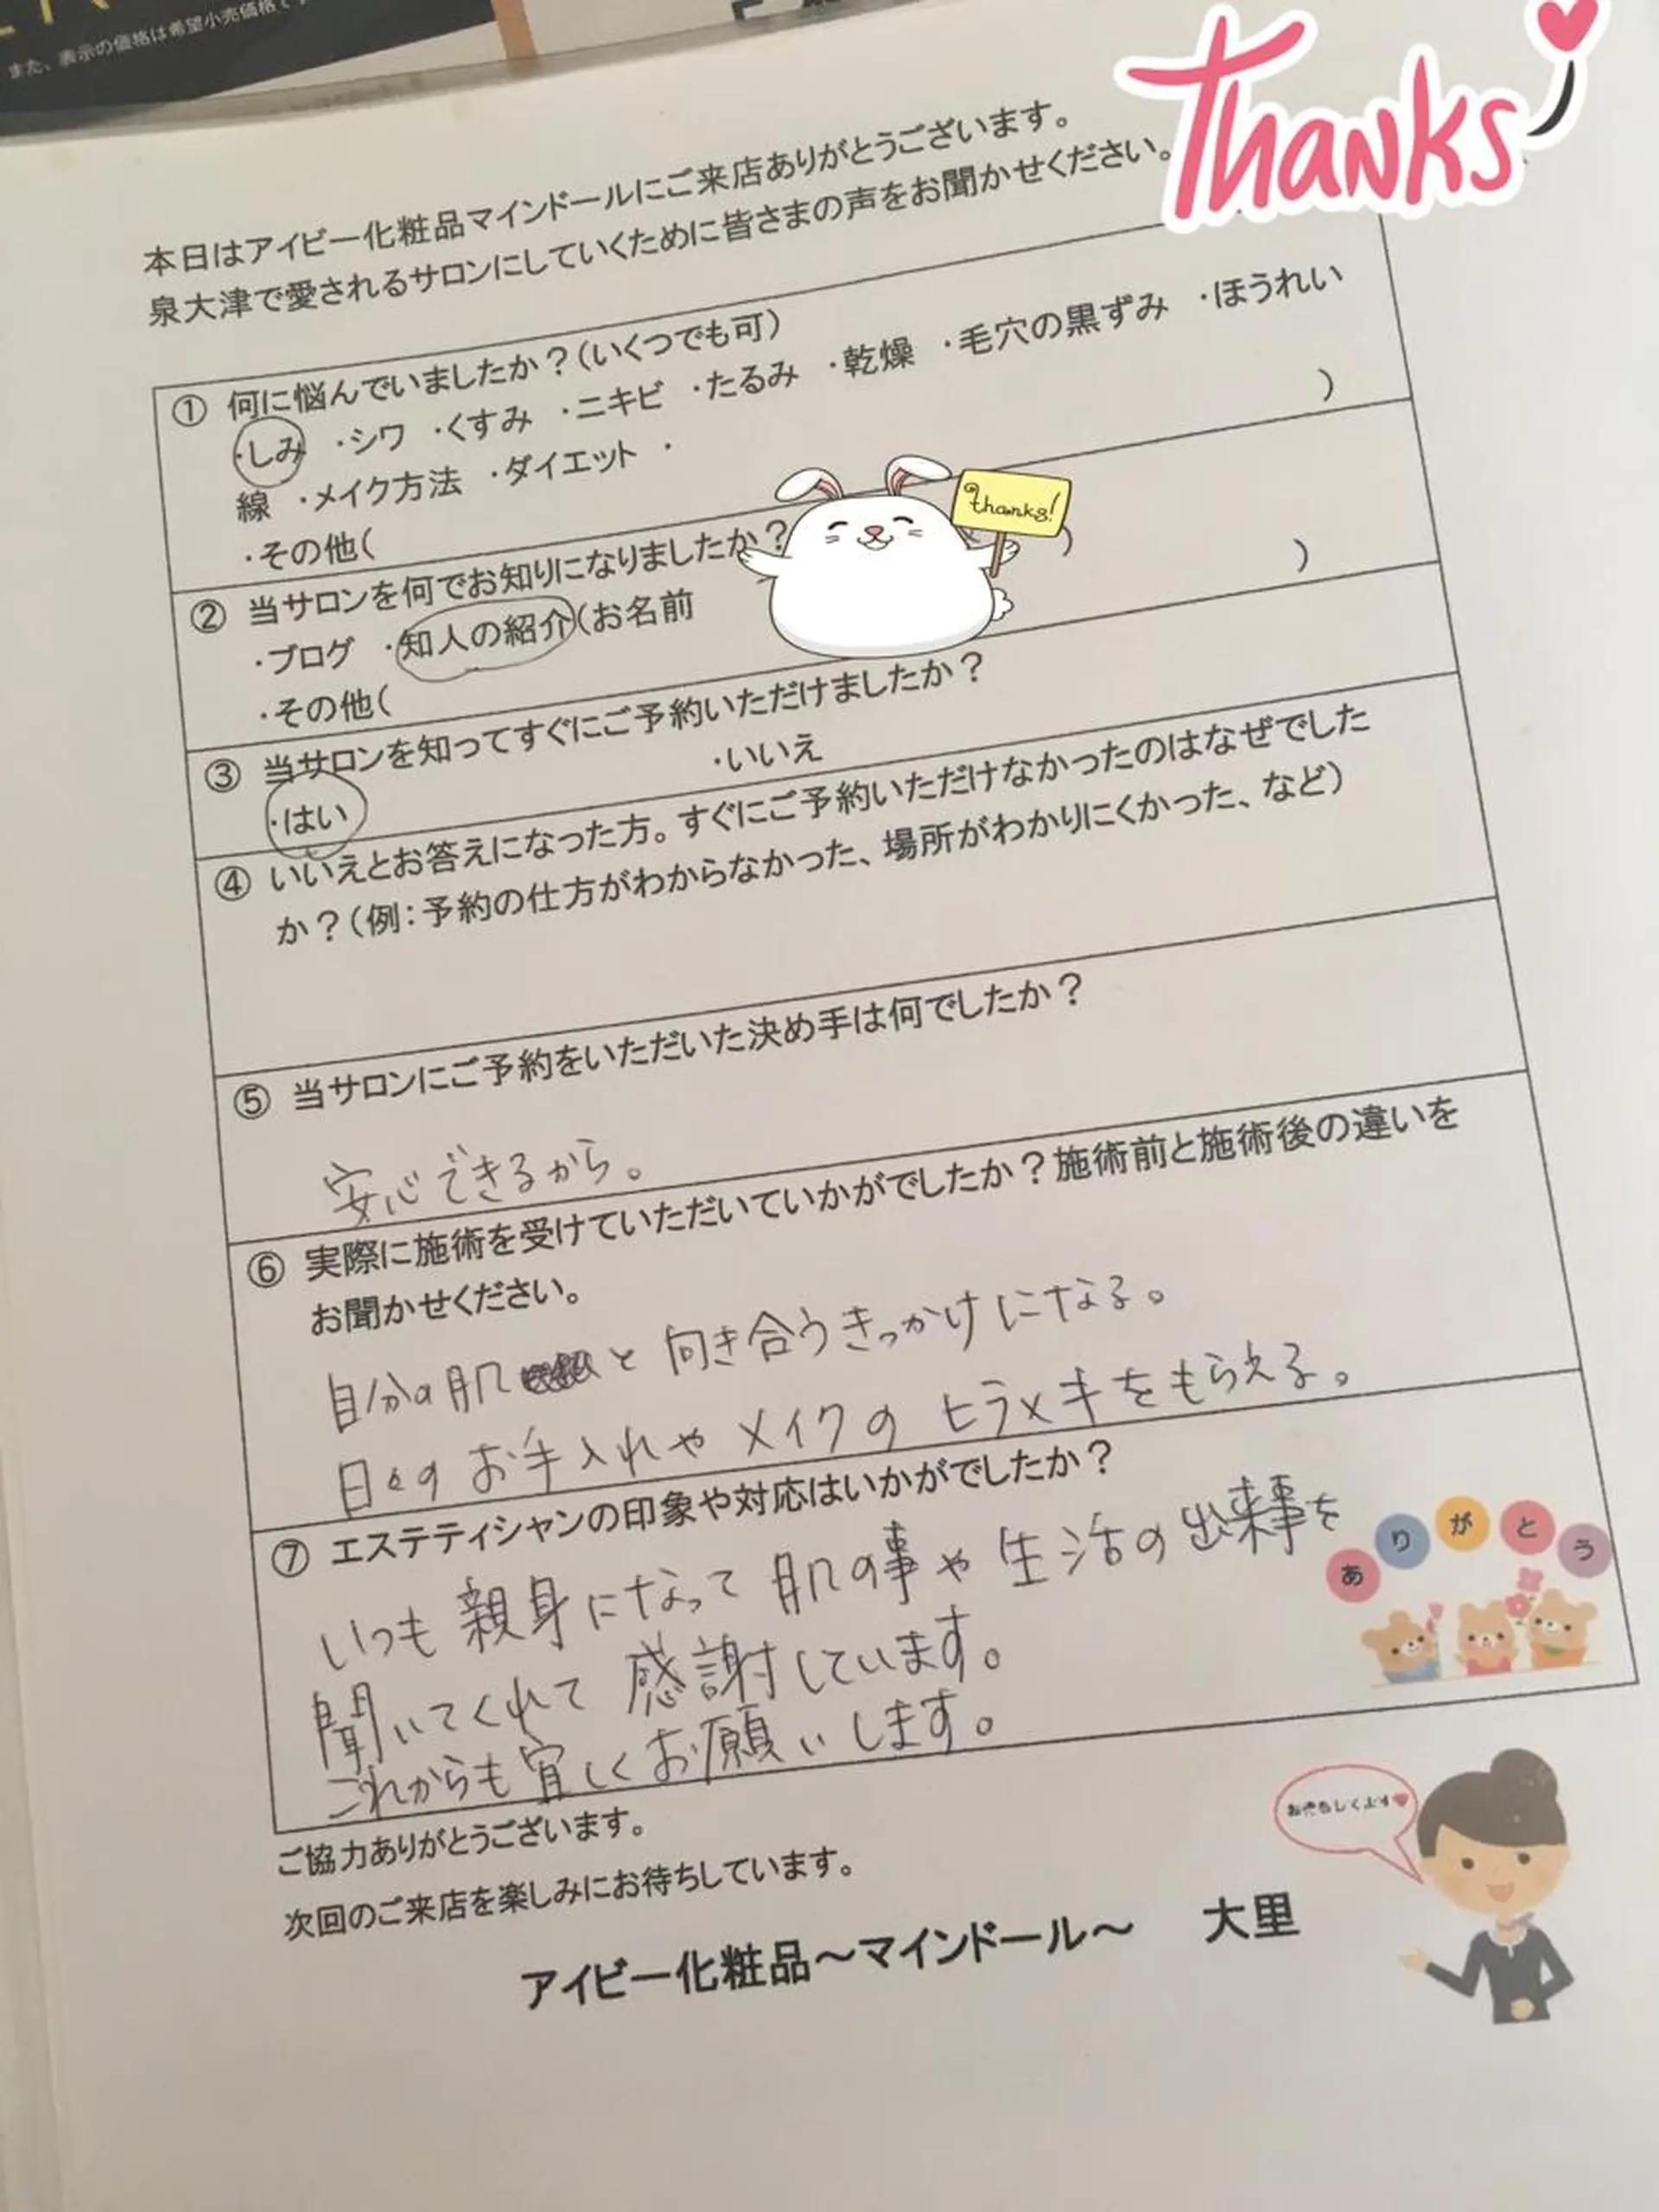 また、表示の価格は希望小売価格で
Thanks
本日はアイビー化粧品マインドールにご来店ありがとうございます。
泉大津で愛されるサロンにしていくために皆さまの声をお聞かせください。
① 何に悩んでいましたか？(いくつでも可)
・しみ ・シワ ・くすみ ・ニキビ ・たるみ ・乾燥 ・毛穴の黒ずみ ・ほうれい
線 ・メイク方法 ・ダイエット ・
・その他( )
② 当サロンを何でお知りになりましたか？
thanks!
・ブログ ・知人の紹介(お名前 )
・その他( )
③ 当サロンを知ってすぐにご予約いただけましたか？
・はい ・いいえ
④ いいえとお答えになった方。すぐにご予約いただけなかったのはなぜでした
か？(例：予約の仕方がわからなかった、場所がわかりにくかった、など)
⑤ 当サロンにご予約をいただいた決め手は何でしたか？
安心できるから。
⑥ 実際に施術を受けていただいていかがでしたか？施術前と施術後の違いを
お聞かせください。
自分の肌と向き合うきっかけになる。
日々のお手入れやメイクのヒラメキをもらえる。
⑦ エステティシャンの印象や対応はいかがでしたか？
いつも親身になって肌の事や生活の出来事を
聞いてくれて感謝しています。
これからも宜しくお願いします。
ありがとう
ご協力ありがとうございます。
次回のご来店を楽しみにお待ちしています。
アイビー化粧品～マインドール～ 大里